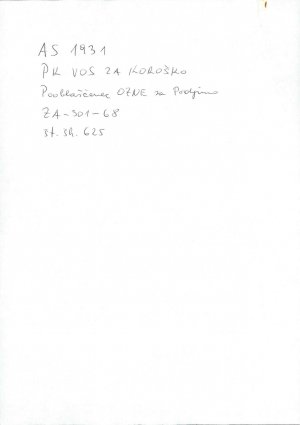 AS 1931
PK VOS ZA KOROŠKO
Pooblaščenec OZNE za Podjuno
ZA-301-68
št. šk. 625